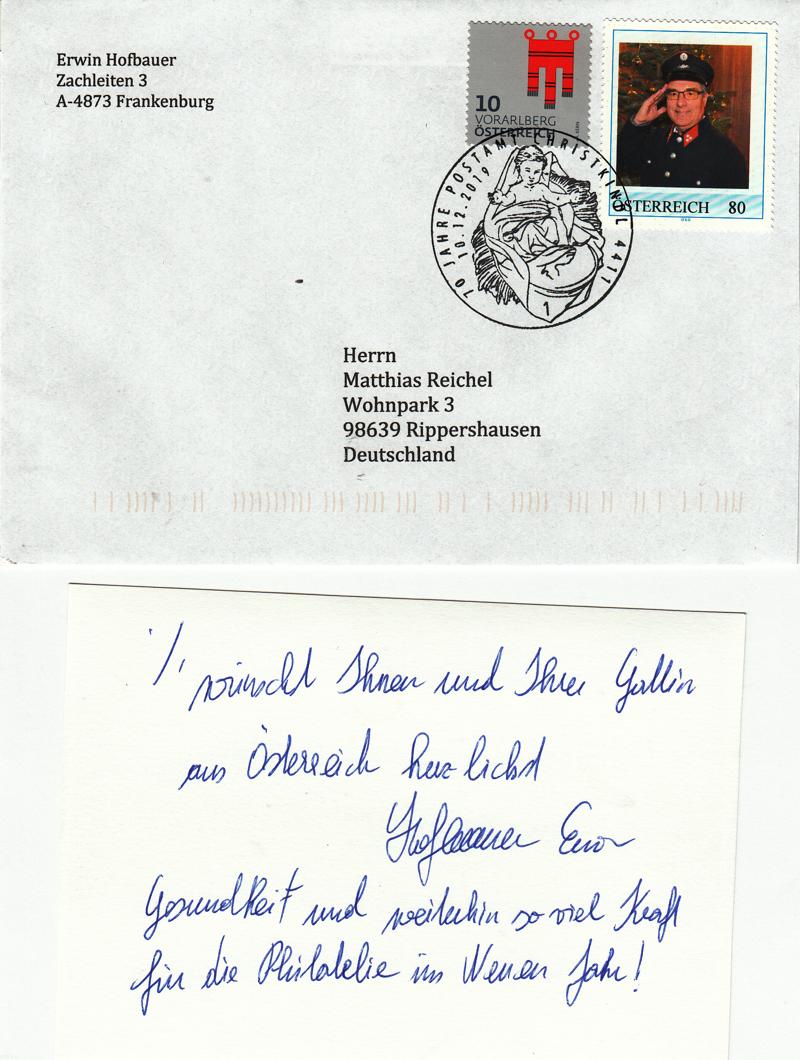 Erwin Hofbauer
Zachleiten 3
A-4873 Frankenburg
10
VORARLBERG
ÖSTERREICH
ÖSTERREICH 80
70 JAHRE POSTAMT CHRISTKINDL 4411
10.12.2019
1
Herrn
Matthias Reichel
Wohnpark 3
98639 Rippershausen
Deutschland
·/,
wünscht Ihnen und Ihrer Gattin
aus Österreich herzlichst
Hofbauer Erwin
Gesundheit und weiterhin so viel Kraft
für die Philatelie im Neuen Jahr!